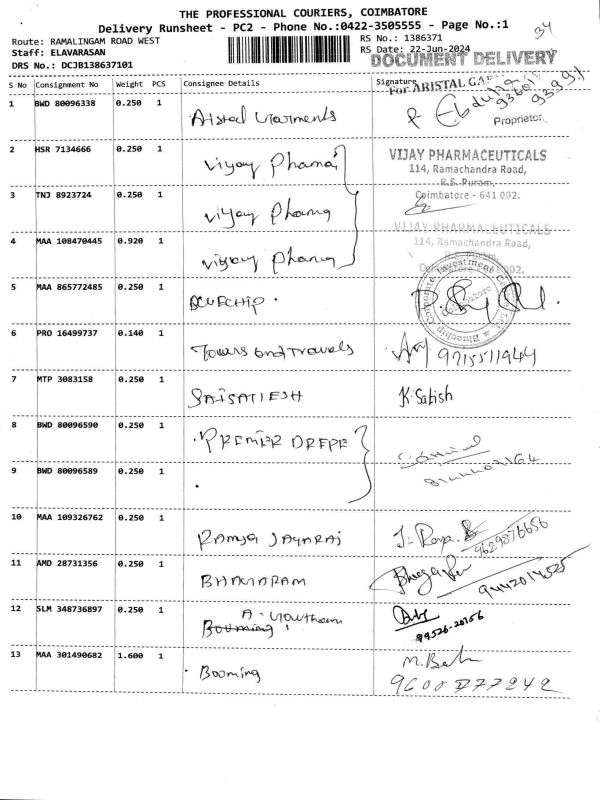 THE PROFESSIONAL COURIERS, COIMBATORE
Delivery Runsheet - PC2 - Phone No.:0422-3505555 - Page No.:1
34
Route: RAMALINGAM ROAD WEST
RS No.: 1386371
Staff: ELAVARASAN
RS Date: 22-Jun-2024
DRS No.: DCJB138637101
DOCUMENT DELIVERY
S No Consignment No Weight PCS Consignee Details Signature
For ARISTAL
1 BWD 80096338 0.250 1 Aistal Garments
Proprietor
2 HSR 7134666 0.250 1 Vijay Pharma
VIJAY PHARMACEUTICALS
114, Ramachandra Road,
R.S. Puram,
Coimbatore - 641 002.
3 TNJ 8923724 0.250 1 Vijay Pharma
VIJAY PHARMACEUTICALS
114, Ramachandra Road,
4 MAA 108470445 0.920 1 Vijay Pharma
5 MAA 865772485 0.250 1 BLUECHIP.
Bluechip Corporate Investment
Coimbatore
6 PRO 16499737 0.140 1 Towers and Travels 9715511944
7 MTP 3083158 0.250 1 SAISATIESH K. Satish
8 BWD 80096590 0.250 1 PREMIER
9 BWD 80096589 0.250 1
10 MAA 109326762 0.250 1 RAMYA JAYARAJ 9629876656
11 AMD 28731356 0.250 1 BHAVARAM
12 SLM 348736897 0.250 1 A. Gowtham
Booming
99526-20156
13 MAA 301490682 1.600 1 Booming
9600777242